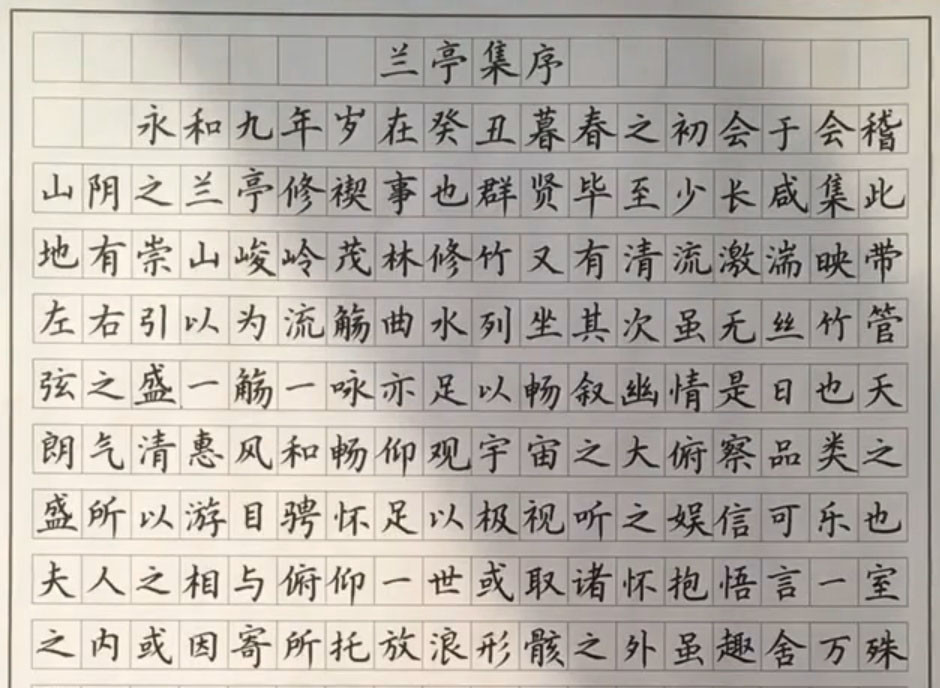 兰亭集序
永和九年岁在癸丑暮春之初会于会稽
山阴之兰亭修禊事也群贤毕至少长咸集此
地有崇山峻岭茂林修竹又有清流激湍映带
左右引以为流觞曲水列坐其次虽无丝竹管
弦之盛一觞一咏亦足以畅叙幽情是日也天
朗气清惠风和畅仰观宇宙之大俯察品类之
盛所以游目骋怀足以极视听之娱信可乐也
夫人之相与俯仰一世或取诸怀抱悟言一室
之内或因寄所托放浪形骸之外虽趣舍万殊